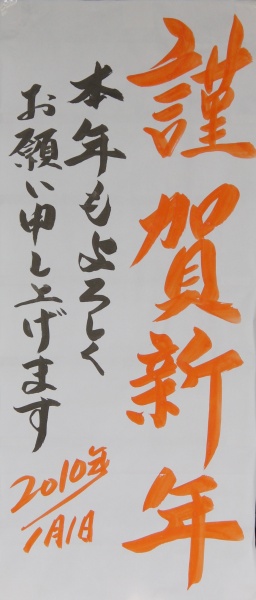 謹賀新年
本年もよろしく
お願い申し上げます
2010年
1月1日